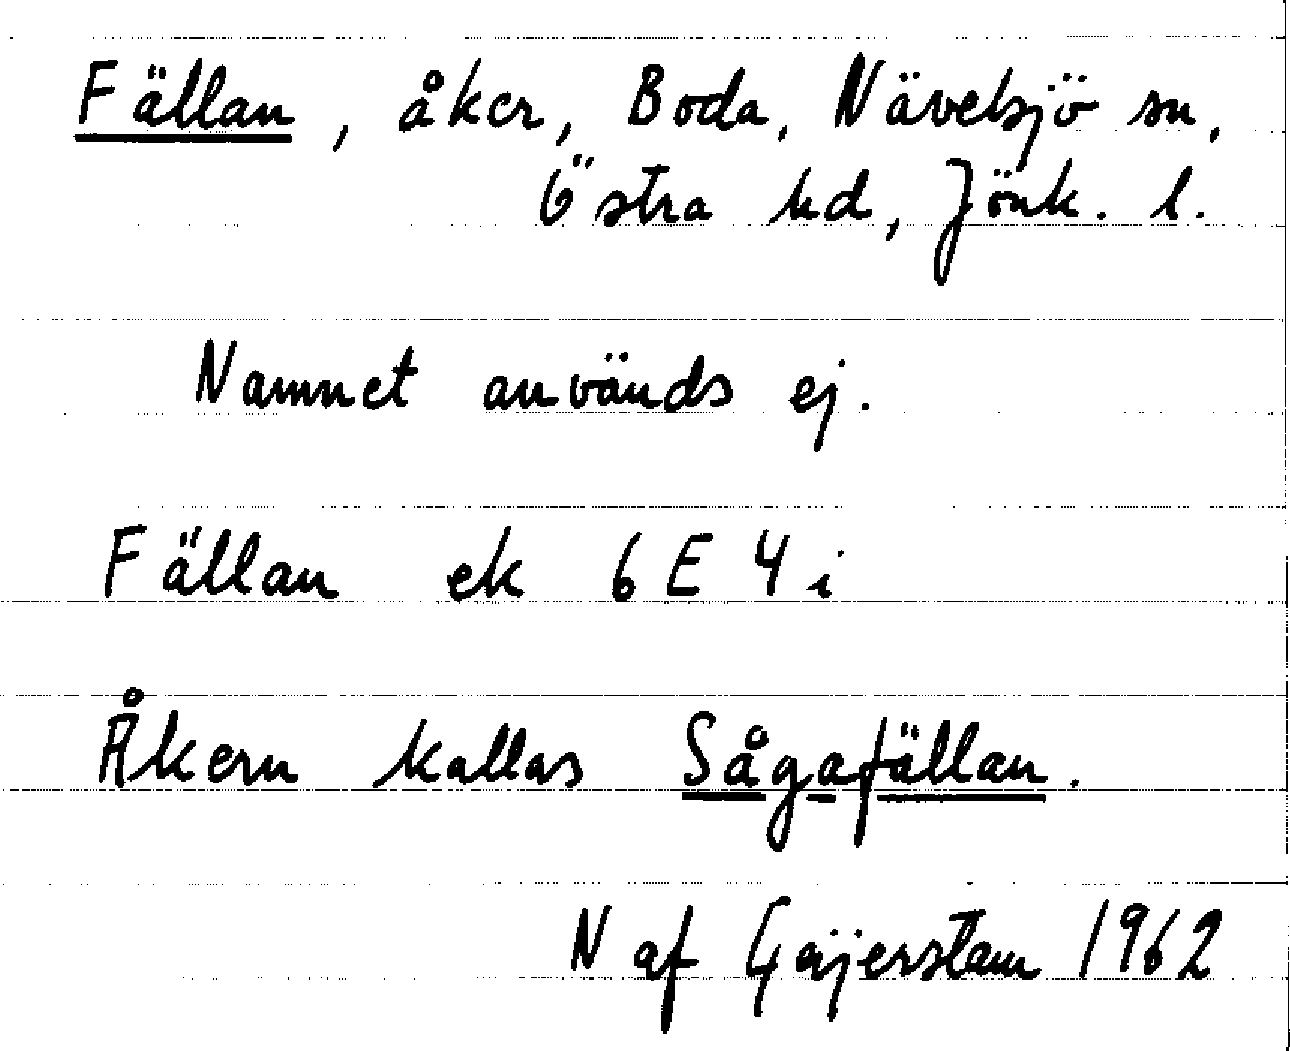 Fällan, åker, Boda, Nävelsjö sn,
Östra hd, Jönk. l.
Namnet används ej.
Fällan ek 6 E 4 i
Åkern kallas Sågafällan.
N af Geijerstam 1962